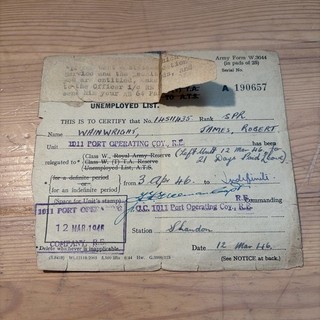 Army Form W.3044
(in pads of 25)
Serial No.
A 190657
to the Officer i/c
UNEMPLOYED LIST.
THIS IS TO CERTIFY that No. 14511435 Rank SPR
Name WAINWRIGHT, JAMES, ROBERT
Unit 1011 PORT OPERATING COY. R.E. has been
(Left Unit 12 Mar 46 for
21 Days
relegated to* (Class W., Royal Army Reserve
(Class W. (T) T.A. Reserve
(Unemployed List, A.T.S.
for a definite period
or
for an indefinite period
from 3 Apr 46 to Indefinite
(Space for Unit's stamp)
Commanding
O.C. 1011 Port Operating Coy. R.E.
1011 PORT OPER
12 MAR 1946
COMPANY, R.E.
Station Shandon
Date 12 Mar 46.
*Delete whichever is inapplicable.
(See NOTICE at back).